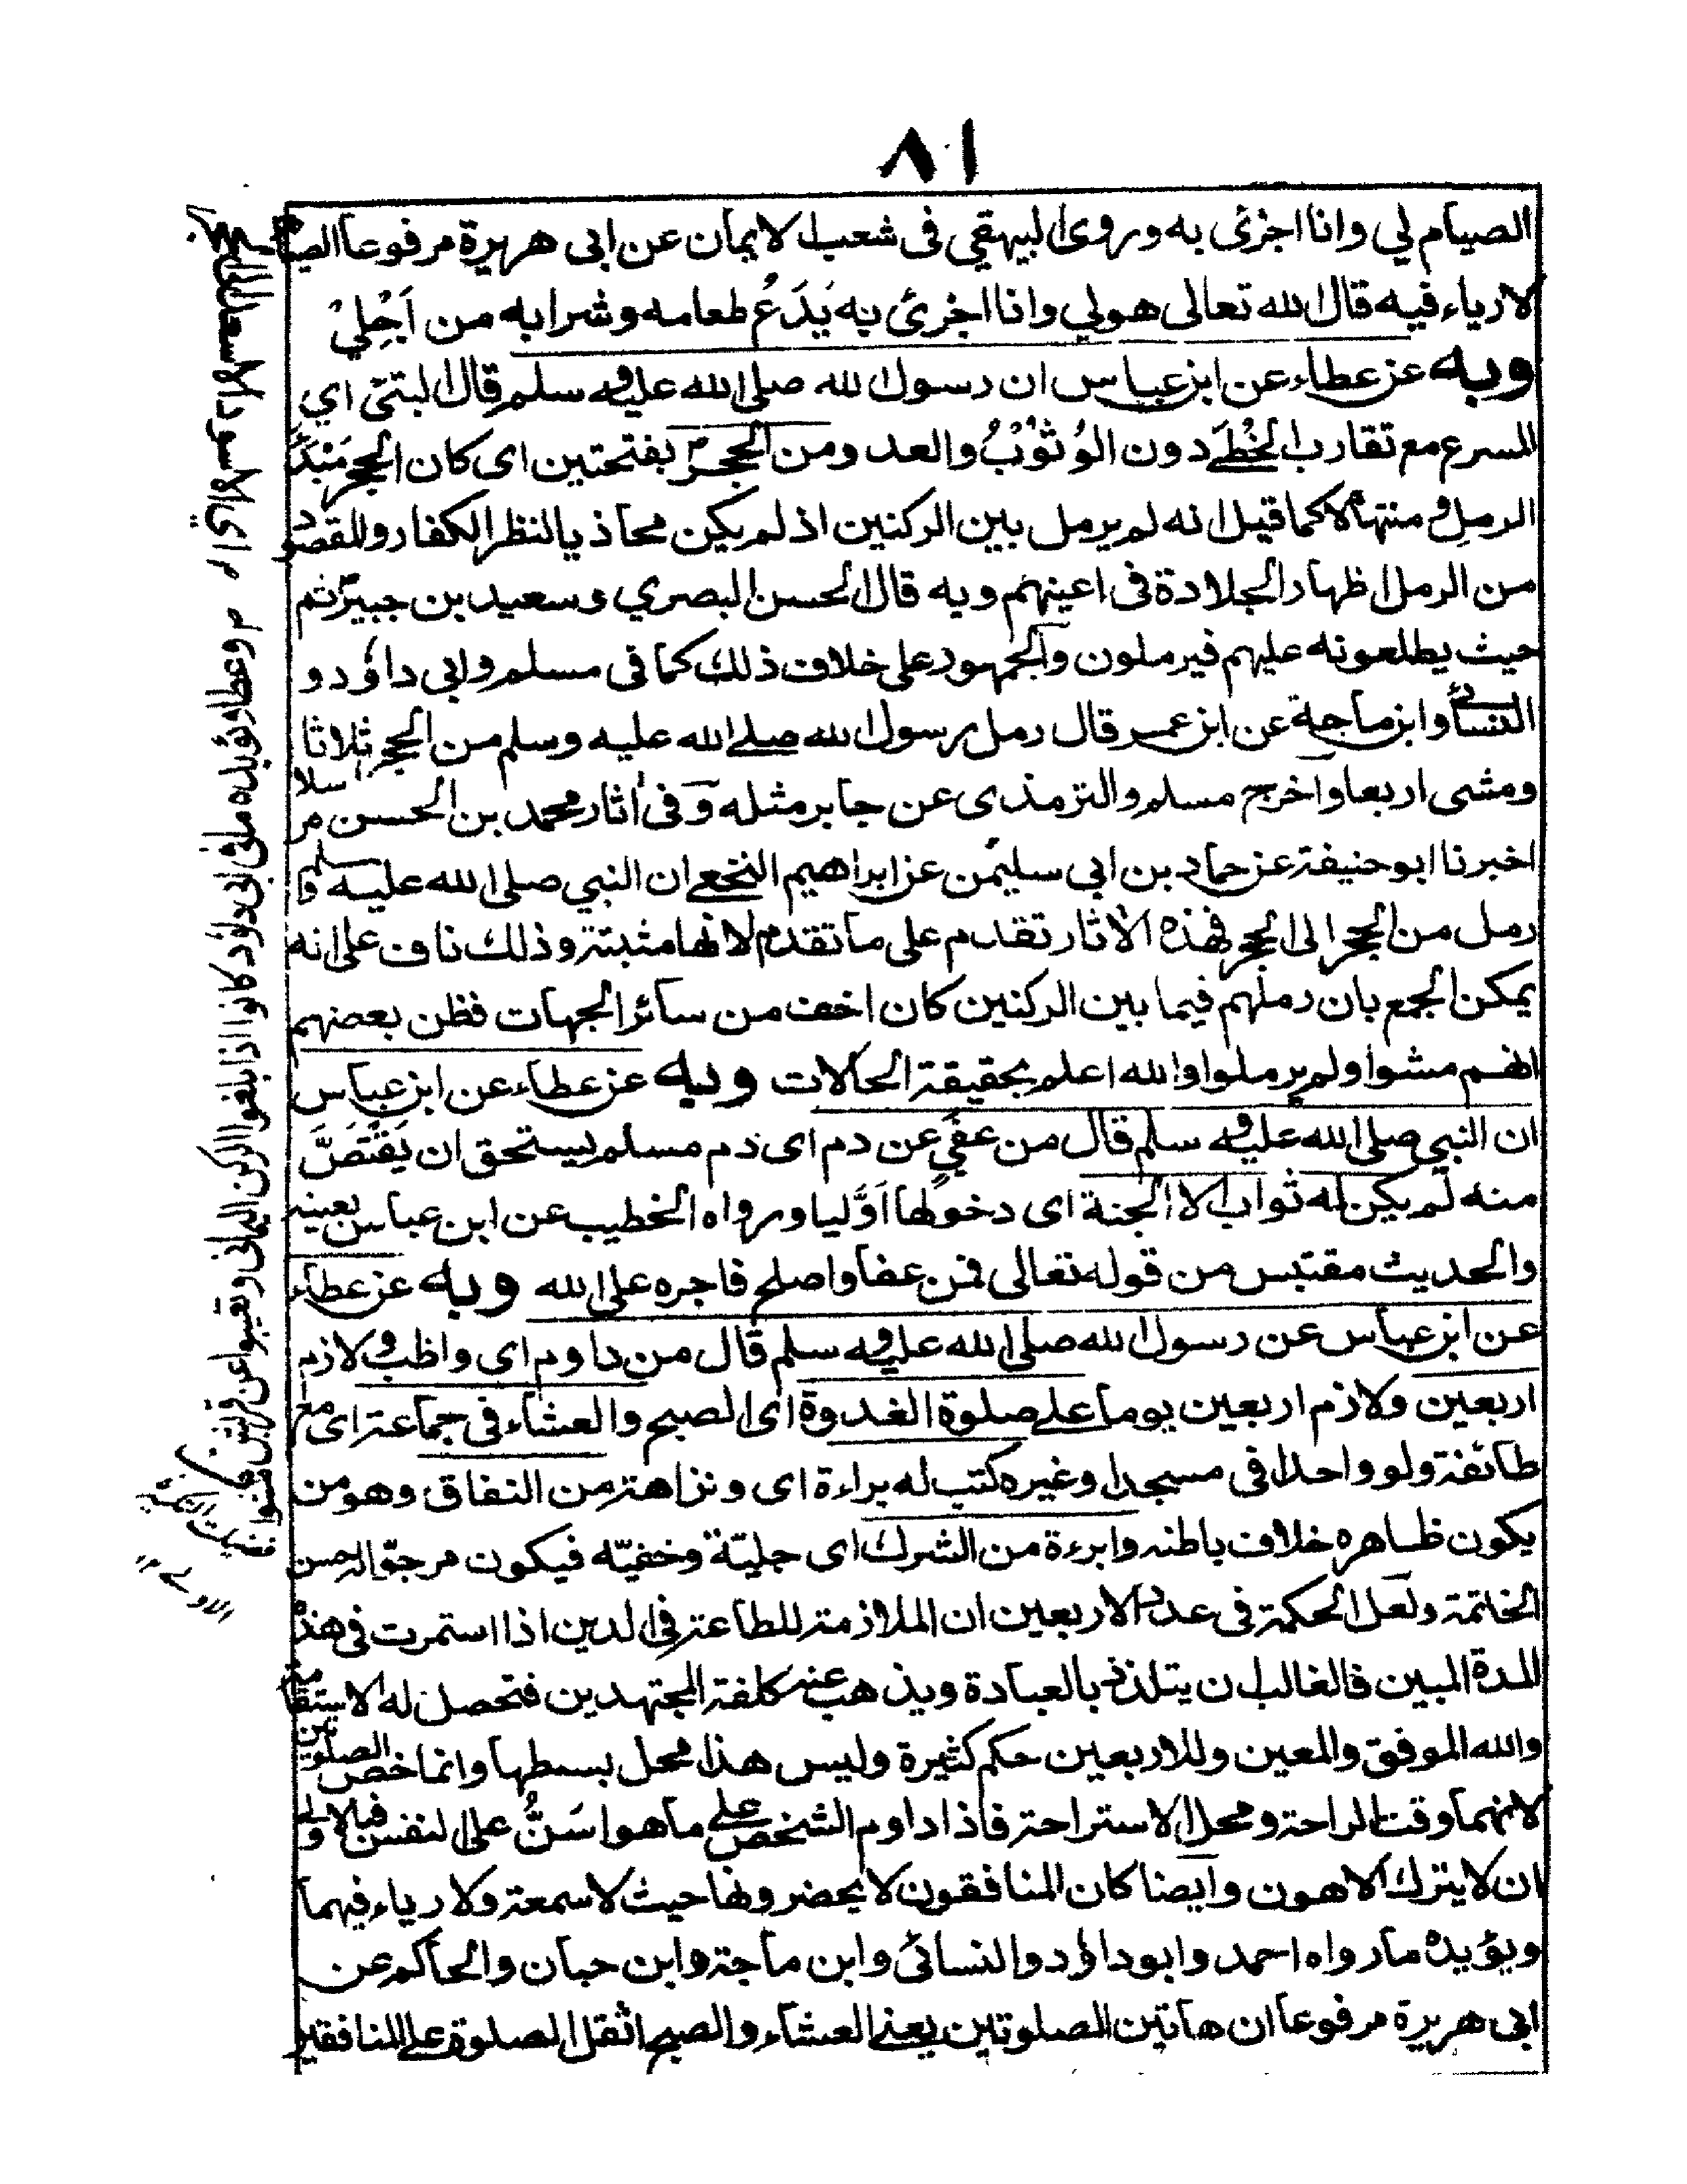 ٨١
الصيام لي وانا اجزئ به وروى البيهقي فى شعب الايمان عن ابى هريرة مرفوعا الصيام
لا رياء فيه قال الله تعالى هو لي وانا اجزئ به يَدَعُ طعامه وشرابه من اَجْلِيْ
وبه عن عطاء عن ابن عباس ان رسول الله صلى الله عليه وسلم قال البتئ اي
المسرع مع تقارب الخُطٰے دون الوُثُوْبُ والعد ومن الحجر بفتحتين اى كان الحجر مَبْدَءَ
الرمل ومنتهاه لا كما قيل انه لم يرمل بين الركنين اذ لم يكن محاذيا لنظر الكفار والمقصود
من الرمل اظهار الجلادة فى اعينهم وبه قال الحسن البصري وسعيد بن جبير
حيث يطلعونه عليهم فيرملون والجمهور على خلاف ذلك كما فى مسلم وابى داؤد و
النسائے وابن ماجة عن ابن عمر قال رمل رسول الله صلے الله عليه وسلم من الحجر ثلاثا
ومشى اربعا واخرج مسلم والترمذى عن جابر مثله وفى اثار محمد بن الحسن مرسلا
اخبرنا ابو حنيفة عن حماد بن ابى سليمٰن عن ابراهيم النخعے ان النبي صلى الله عليه وسلم
رمل من الحجر الى الحجر فهذه الاثار تقدم على ما تقدم لانها مثبتة وذلك ناف على انه
يمكن الجمع بان رملهم فيما بين الركنين كان اخف من سائر الجهات فظن بعضهم
انهم مشوا ولم يرملوا والله اعلم بحقيقة الحالات وبه عن عطاء عن ابن عباس
ان النبي صلى الله عليه وسلم قال من عفى عن دم اى دم مسلم يستحق ان يَقْتَصَّ
منه لم يكن له ثواب الا الجنة اى دخولها اَوَّليا ورواه الخطيب عن ابن عباس بعينه
والحديث مقتبس من قوله تعالى فمن عفا واصلح فاجره على الله وبه عن عطاء
عن ابن عباس عن رسول الله صلى الله عليه وسلم قال من داوم اى واظب ولازم
اربعين ولازم اربعين يوما علے صلوة الغدوة اى الصبح والعشاء فى جماعة اى مع
طائفة ولو واحدا فى مسجد او غيره كتب له براءة اى ونزاهة من النفاق وهو من
يكون ظاهره خلاف باطنه وابرءة من الشرك اى جليّة وخفيّه فيكون مرجوّا له حسن
الخاتمة ولعل الحكمة فى عدد الاربعين ان الملازمة للطاعة فى الدين اذا استمرت فى هذه
المدة المبين فالغالب ان يتلذذ بالعبادة ويذهب عنه كلفة المجتهدين فتحصل له الاستقامة
والله الموفق والمعين وللاربعين حكم كثيرة وليس هذا محل بسطها وانما خص الصلوتين
لانهما وقتا الراحة ومحل الاستراحة فاذا داوم الشخص علے ما هو اشَقُّ على النفس فبالاولى
ان لا يترك الاهون وايضا كان المنافقون لا يحضرونها حيث لا سمعة ولا رياء فيهما
ويؤيده ما رواه احمد وابو داؤد والنسائى وابن ماجة وابن حبان والحاكم عن
ابى هريرة مرفوعا ان هاتين الصلوتين يعنے العشاء والصبح اثقل الصلوة علے المنافقين
وعطا ويؤيده ما فى ابى داؤد كانوا اذا بلغوا الركن اليمانى وتغيبوا عن قريش مشوا